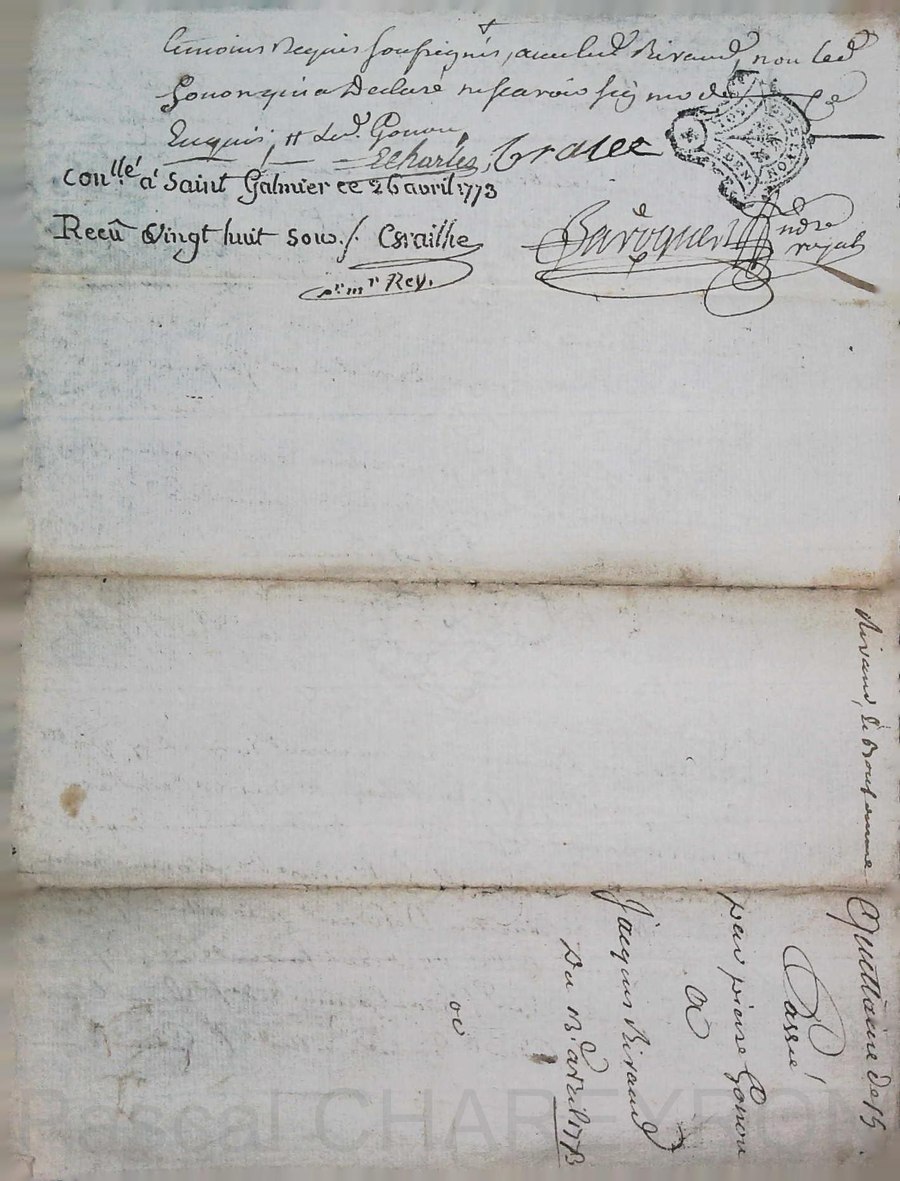 temoins Requis soussignés, avec led Rivaud, non led
Gonon qui a Declaré ne scavoir signer de ce
Enquis, Led. Gonon
Echarles, Grasee
Conllé á Saint Galmier ce 26 avril 1773
Recû Vingt huit sous ./. Csrailhe
pr. mr Rey.
Baroquer
ndre
royal
Rivaud, de
Quittance de 15
Passé
par pierre Gonon
a
Jacques Rivaud
Du 13 avril 1773
Pascal CHAREYRON